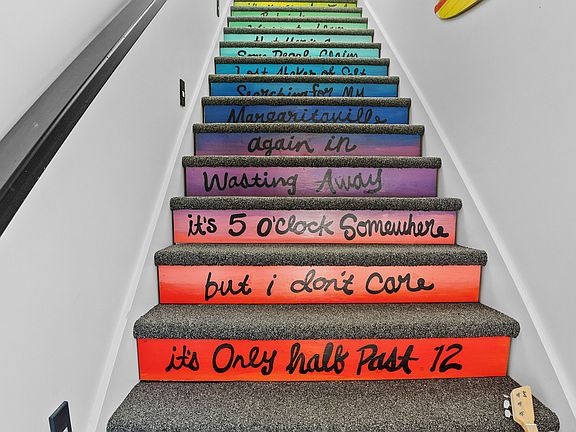 Some People Claim
Lost Shaker of Salt
Searching for My
Margaritaville
again in
Wasting Away
it's 5 o'clock Somewhere
but i don't Care
it's Only half Past 12